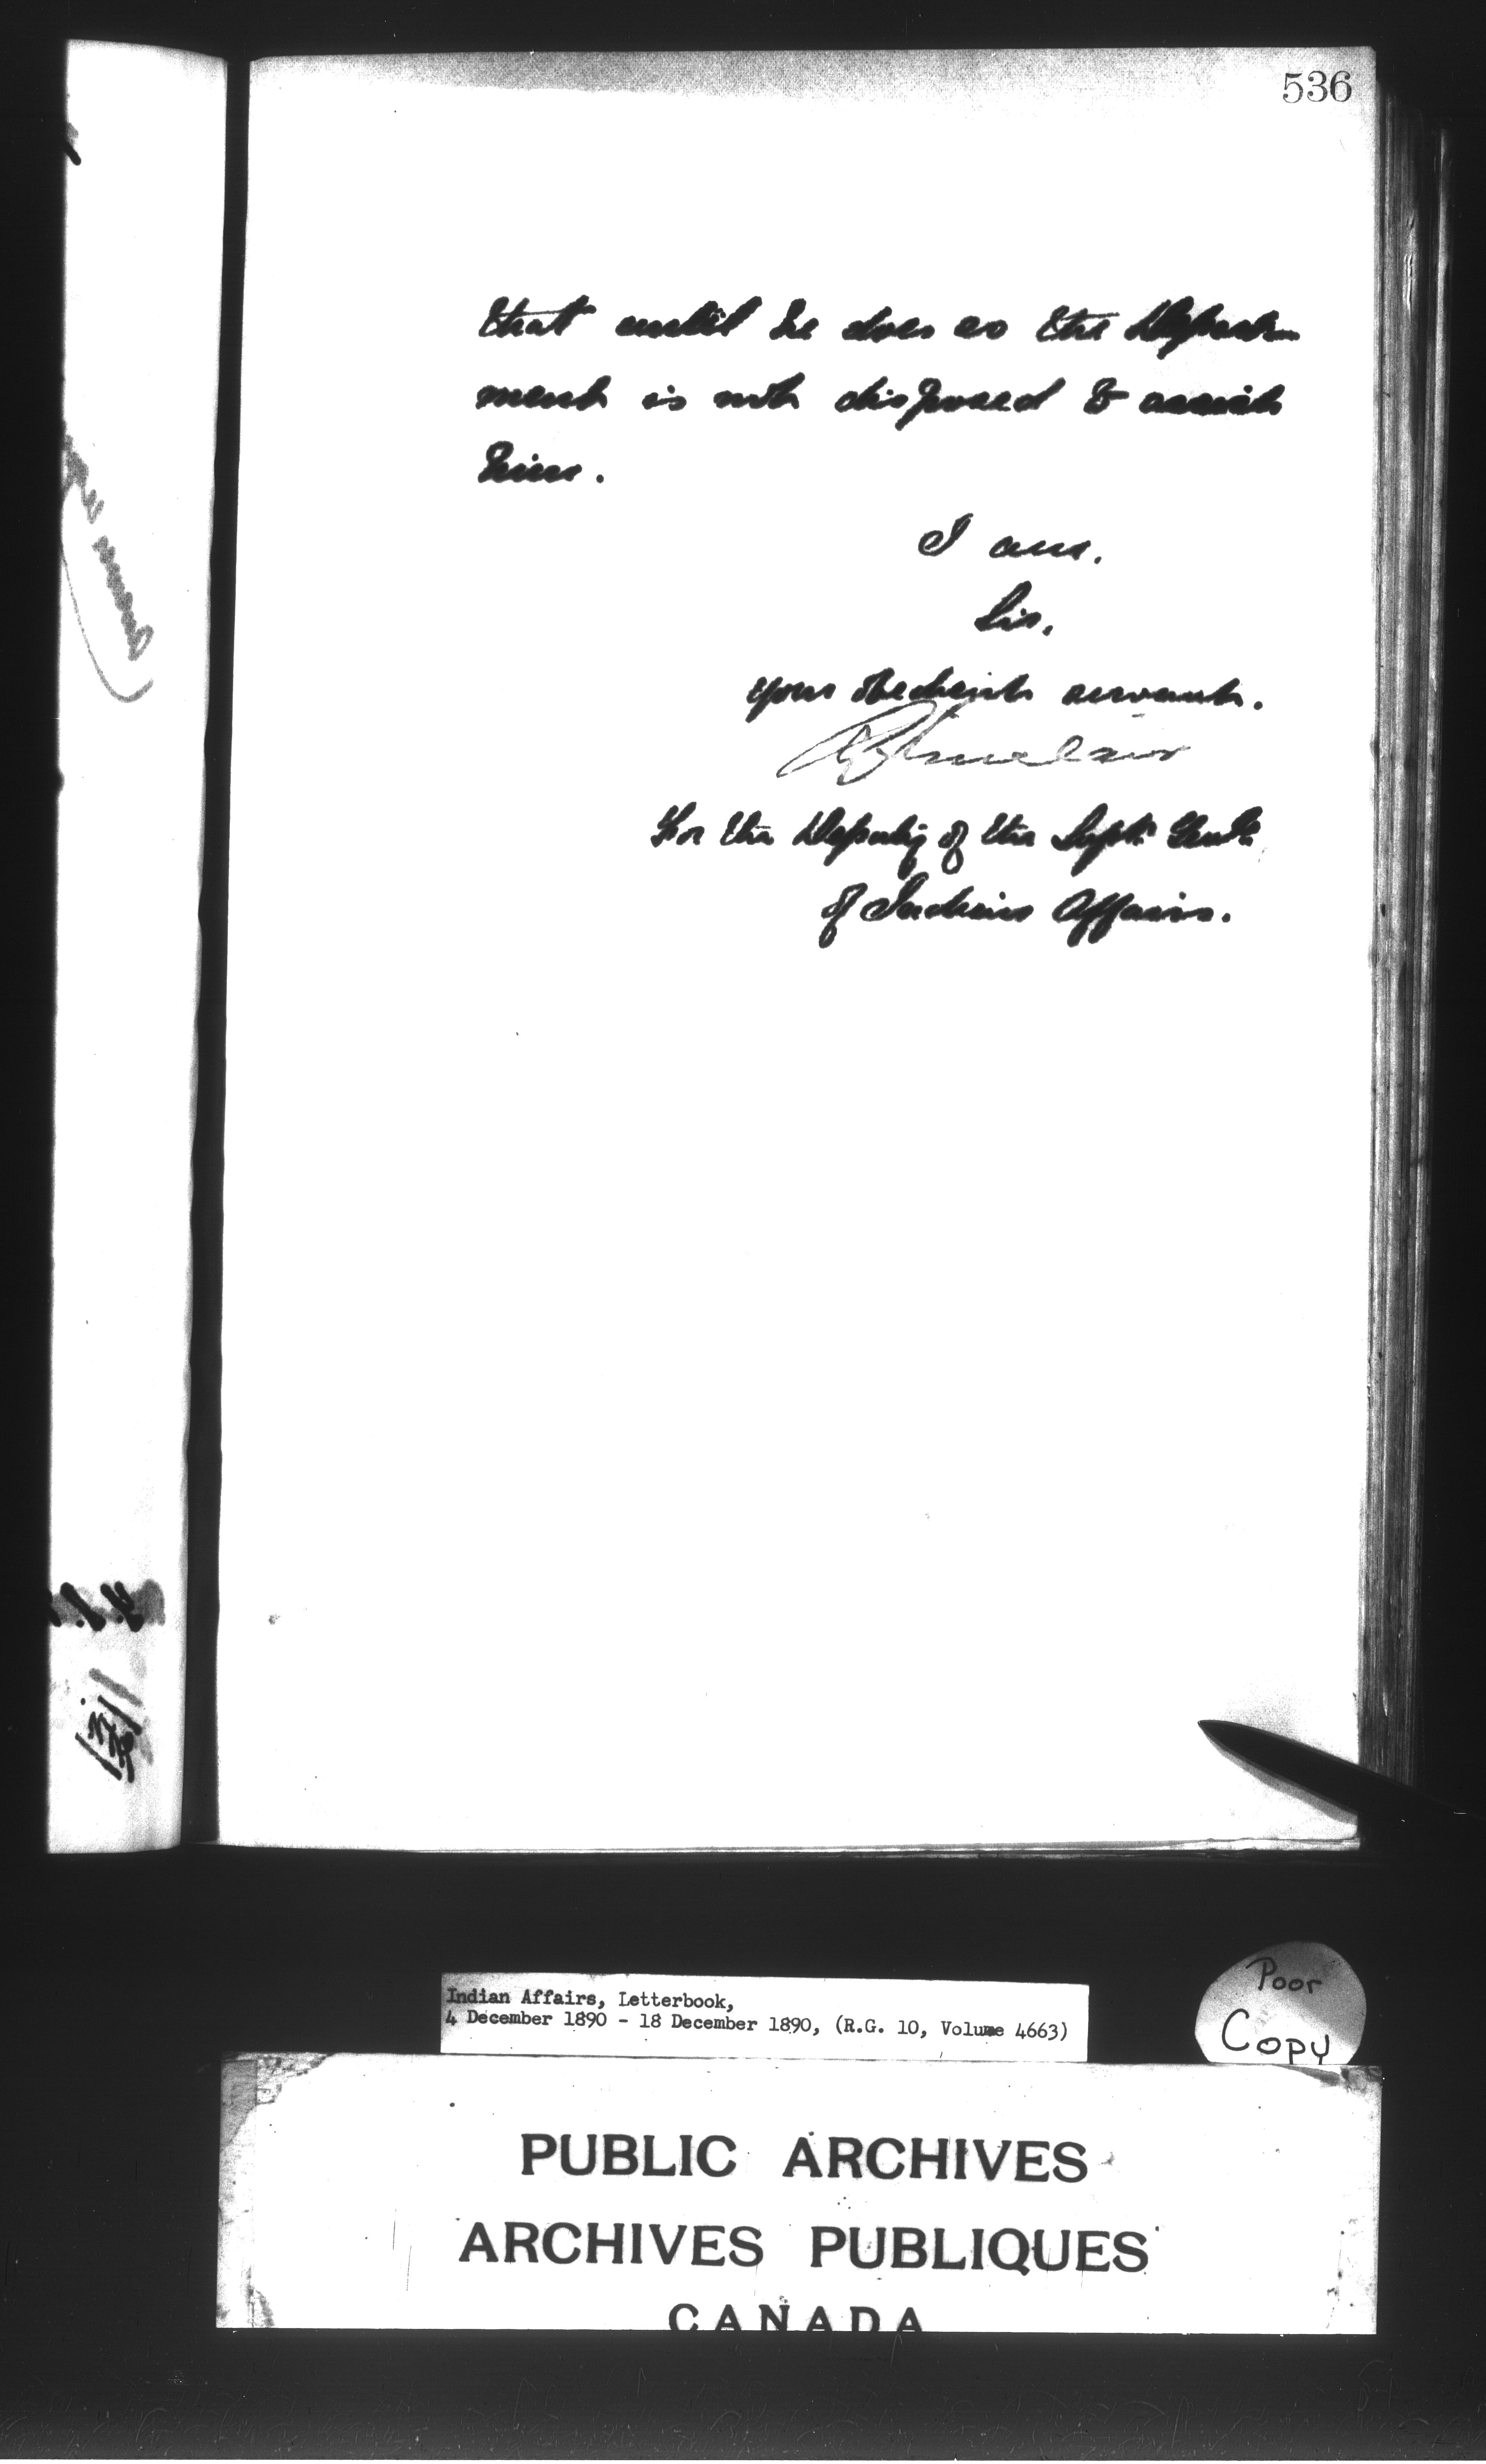 536
that until he does so the Depart-
ment is not disposed to assist
him.
I am.
Sir.
Your obedient servant.
R Sinclair
For the Deputy of the Supt. Genl.
of Indian Affairs.
Indian Affairs, Letterbook,
4 December 1890 - 18 December 1890, (R.G. 10, Volume 4663)
Poor
Copy
PUBLIC ARCHIVES
ARCHIVES PUBLIQUES
CANADA